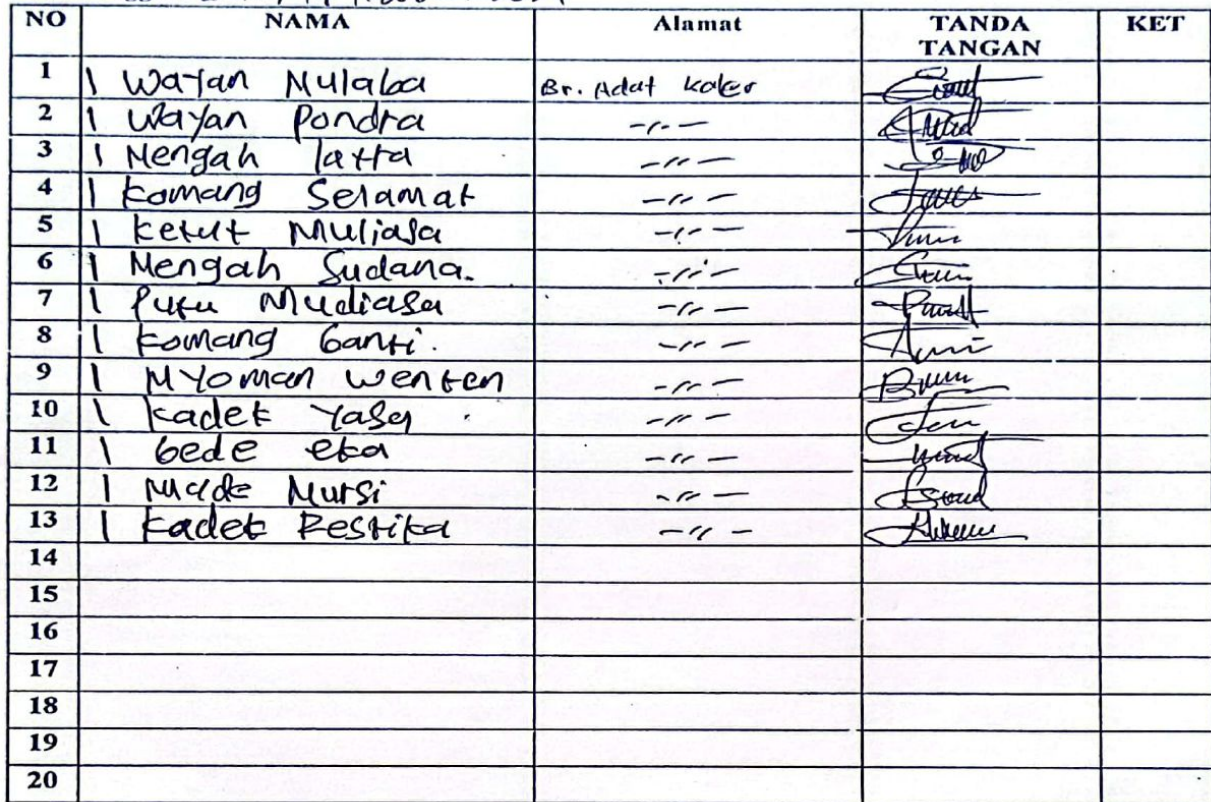 NO NAMA Alamat TANDA TANGAN KET
1 I Wayan Mulaba Br. Adat Kaler
2 I Wayan Pondra -〃-
3 I Nengah latra -〃-
4 I Komang Selamat -〃-
5 I Ketut Muliasa -〃-
6 I Nengah Sudana. -〃-
7 I Putu Mudiasa -〃-
8 I Komang Ganti. -〃-
9 I Nyoman Wenten -〃-
10 I Kadek Yasa -〃-
11 I Gede eka -〃-
12 I Made Mursi -〃-
13 I Kadek Restika -〃-
14
15
16
17
18
19
20